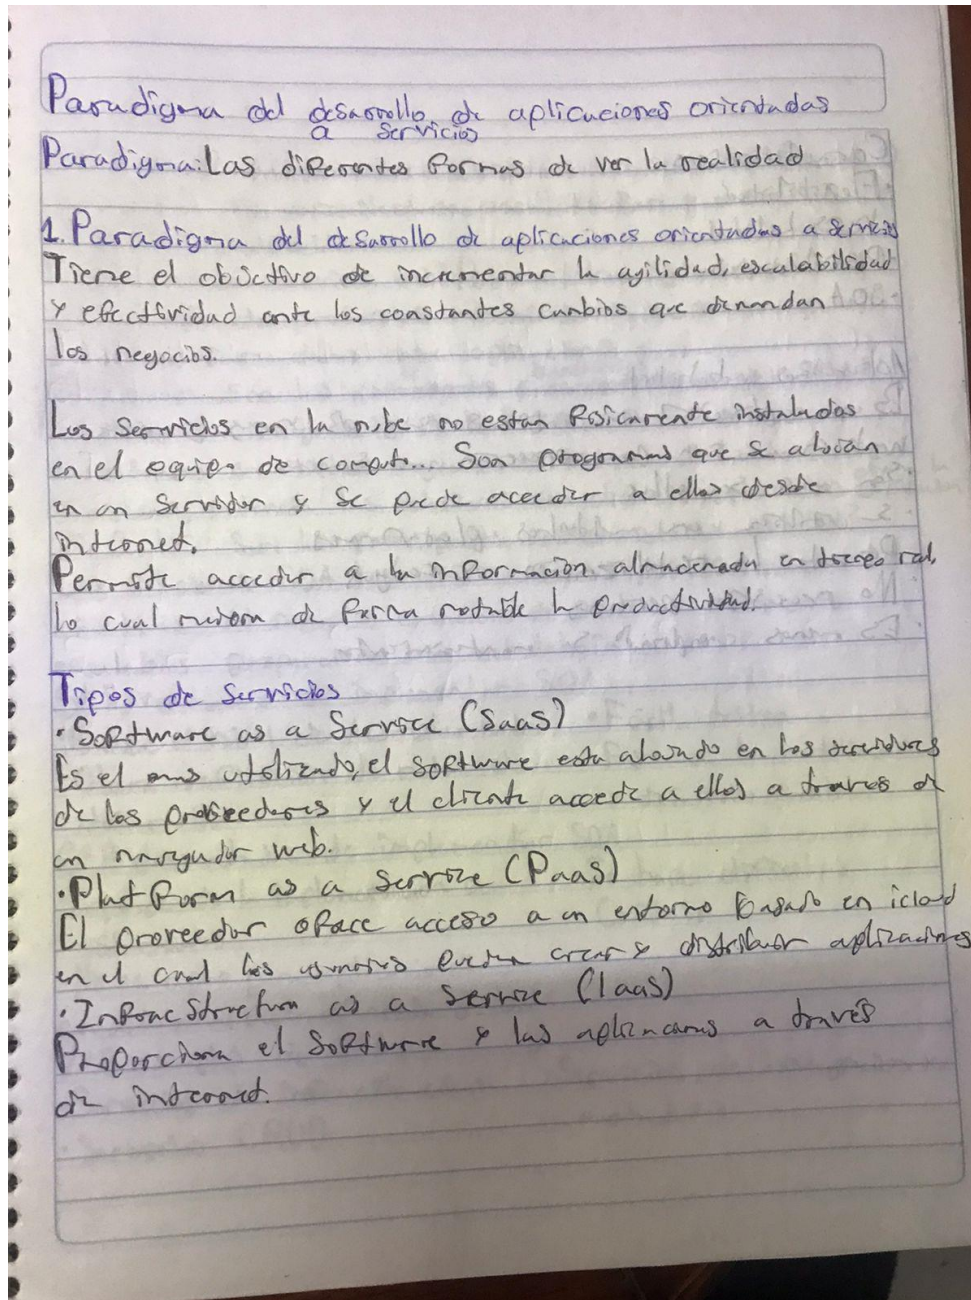 Paradigma del desarrollo de aplicaciones orientadas
a servicios
Paradigma: Las diferentes formas de ver la realidad
1. Paradigma del desarrollo de aplicaciones orientadas a servicios
Tiene el objetivo de incrementar la agilidad, escalabilidad
y efectividad ante los constantes cambios que demandan
los negocios.
Los servicios en la nube no estan fisicamente instalados
en el equipo de computo... Son programas que se alojan
en un servidor y se puede acceder a ellos desde
internet.
Permite acceder a la información almacenada en tiempo real,
lo cual mejora de forma notable la productividad.
Tipos de servicios
• Software as a Service (SaaS)
Es el mas utilizado, el software esta alojado en los servidores
de los proveedores y el cliente accede a ellos a traves de
un navegador web.
• Platform as a service (Paas)
El proveedor ofrece acceso a un entorno basado en icloud
en el cual los usuarios pueden crear y distribuir aplicaciones
• Infraestructura as a Service (Iaas)
Proporciona el software y las aplicaciones a través
de internet.